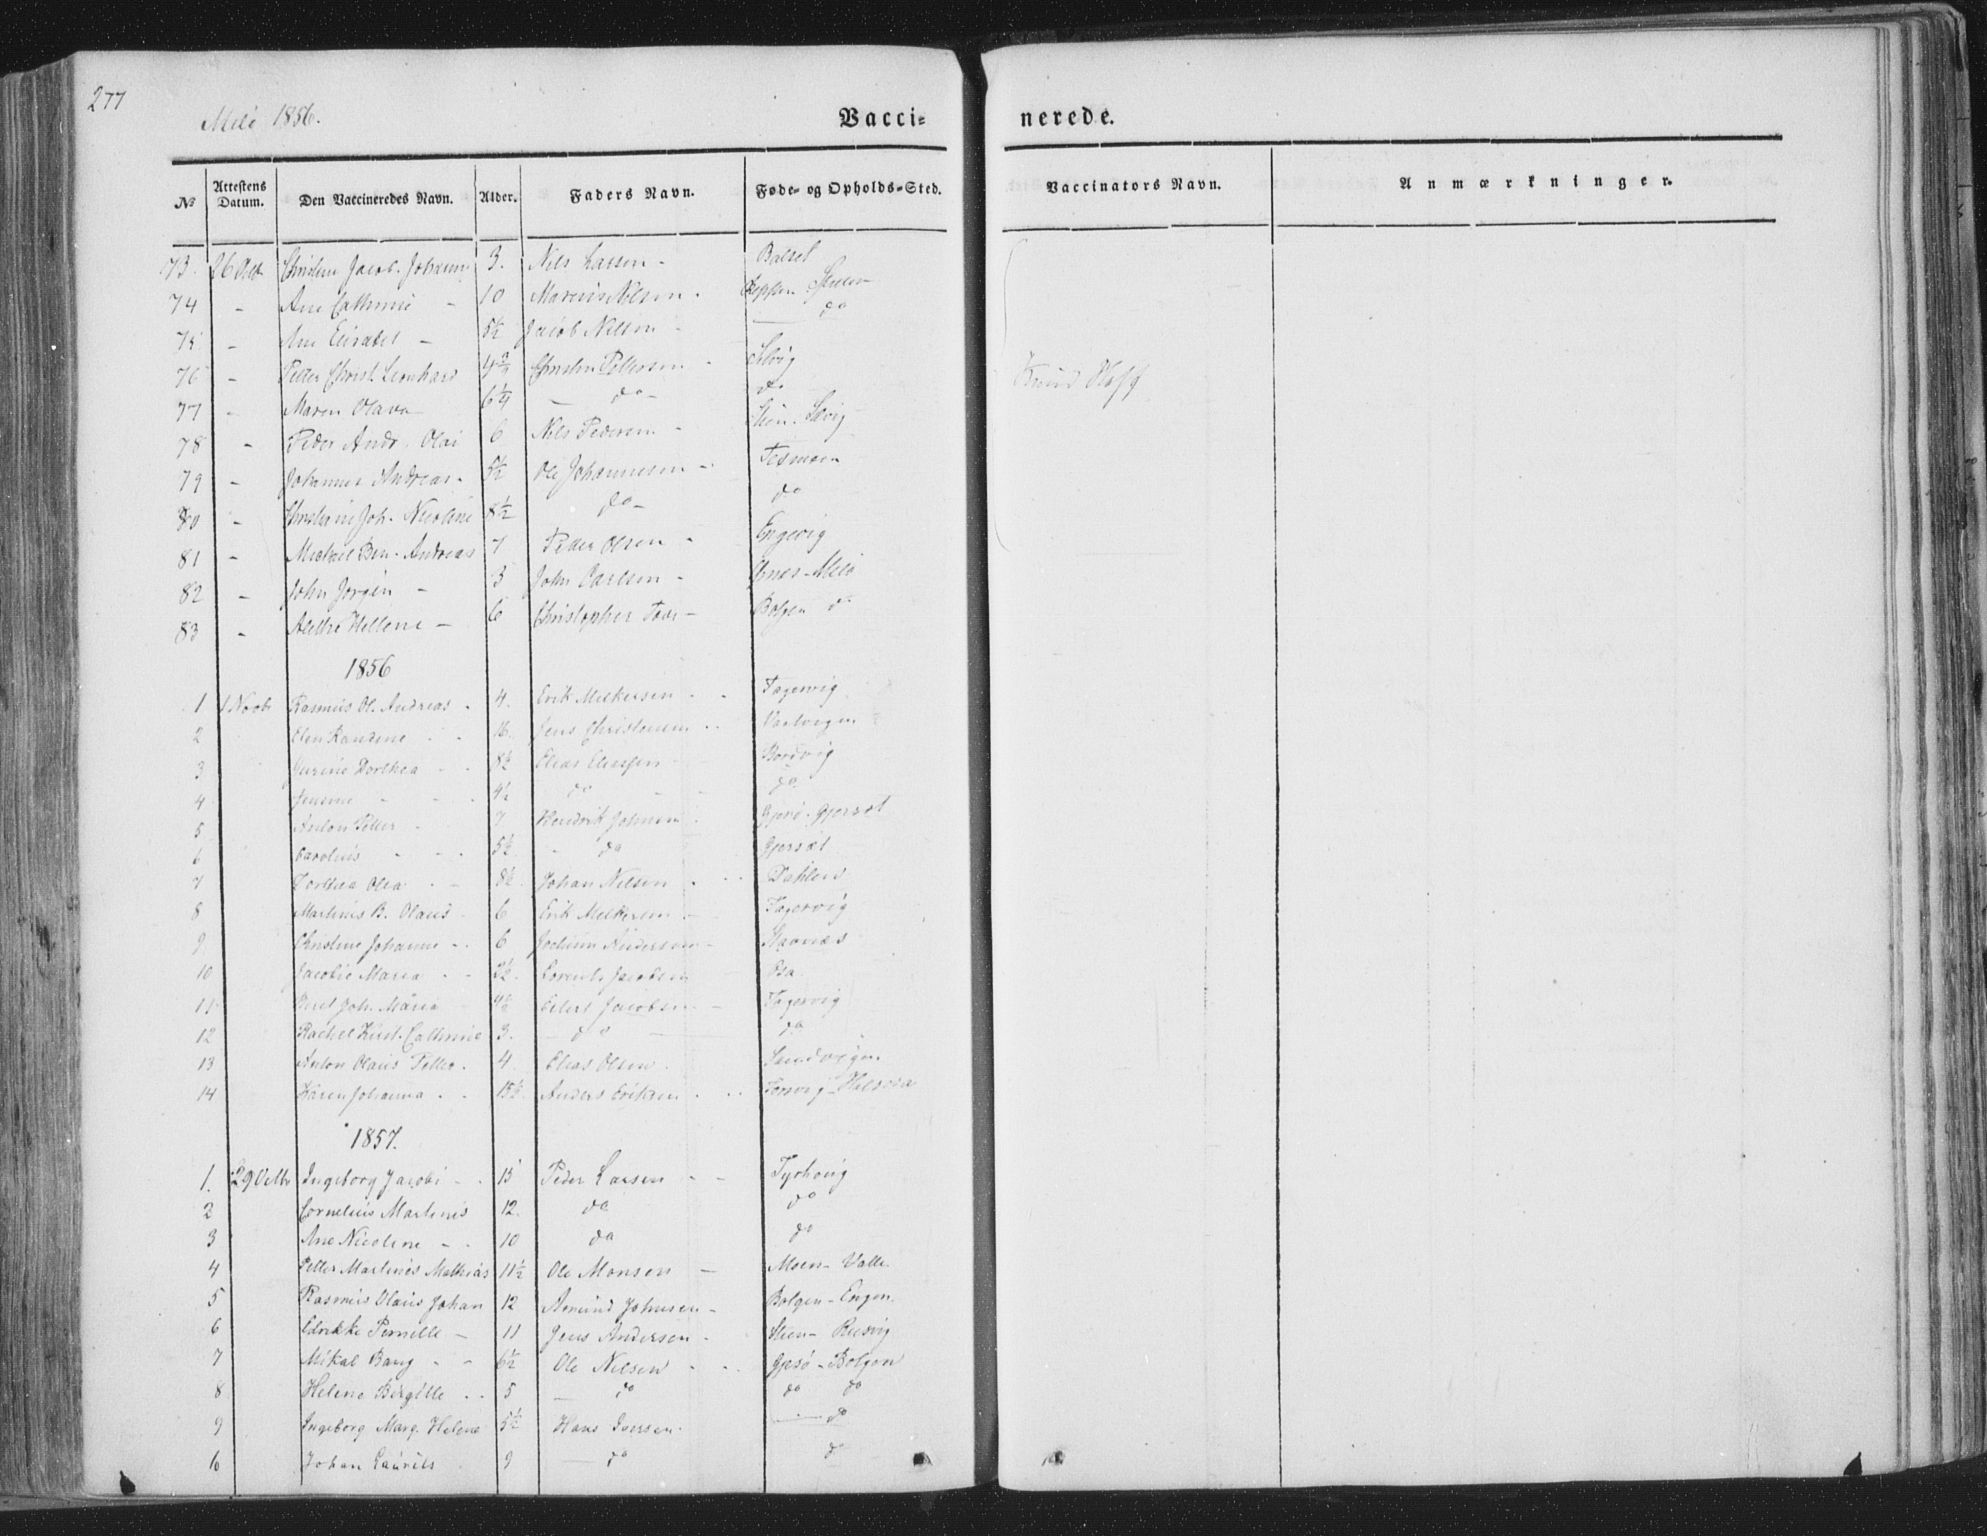 277
Melö 1856.
Vacci- nerede.
№ Attestens Datum. Den Vaccineredes Navn. Alder. Faders Navn. Føde- og Opholds-Sted. Vaccinators Navn. Anmærkninger.
73. 26 Oct Christine Jacob. Johann 3. Nils Larsen - Balset
74 - Ane Cathrine - 10 Marcus Nilsen -
75 - Ane Elisabet - 5½ Jacob Nilsen - do
76 - Petter Christ. Leonhard 4¾ Christen Pettersen - Selvig
77 - Maren Olava 6¼ - do - do
78 - Peder Andr. Olai 6 Nils Pedersen - Steen. Selvig
79 - Johannes Andreas - 5½ Ole Johannesen -
80 - Christine Joh. Nicoline 8½ do - do
81 - Michael Ben. Andreas 7 Peder Olsen - Engevig
82 - John Jørgen - 3 John Carlsen - Melö
83 - Alethe Hellene - 6 Christopher - Bolgen do
1856
1 1 Novbr Rasmus Ol. Andreas . 4. Erik Melkersen . . Fagervig
2 Elen 16. Jens Christensen . .
3 Jurine Dorthea . . 8½ Elias Eliassen - Bordvig
4 Jensine - - . 4½ do - - do
5 Anton Petter . 7 Hendrik Johnsen . Gjersæt
6 Carolius - - . 5½ - do Gjersæt
7 Dorthea Olea . - 8½ Johan Nilsen . . . Dahlen
8 Martinus B. Olaus - 6 Erik Melkersen - Fagervig
9 Christine Johanne - . 6 Jochum Andersen - Stavnæs
10 Jacobie Maria - - 2½. Jacobsen Osa
11 Joh. Maria 4½ Eilert Jacobsen - Fagervig
12 Rachel Kirst. Cathrine 3. - do do
13 Anton Olaus Petter. 4. Elias Olsen . Sandvigen
14 Karen Johanna . . 15½. Anders Eriksen . . .
1857.
1. 29 Octbr Ingeborg Jacobi - . 15 Peder Larsen - -
2 Cornelius Martinus 12. do do
3 Ane Nicoline - . 10 do do
4 Petter Martines Mathias 11½ Ole Monsen - Moen - Valle
5 Rasmus Olaus Johan 12 Amund Johnsen - Bolgen - Engen.
6 Edrikke Pernille - 11 Jens Andersen - Steen -
7 Mikal Bang - - 6½ Ole Nilsen - . . Gjesö - Bolgen
8 Helene Birgitte . . 5 - do do do
9 Ingeborg Marg. Helene 5½ Hans Iversen. - do
10 Johan Laurits 9 - do do
Knud